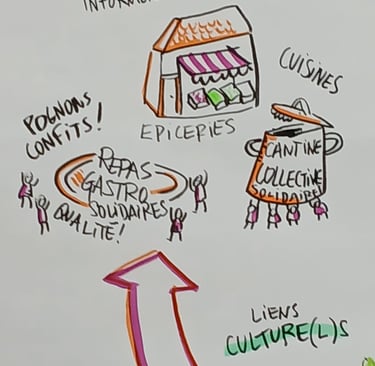 EPICERIES
CUISINES
POGNONS
CONFITS!
REPAS
GASTRO
SOLIDAIRES
QUALITÉ!
CANTINE
COLLECTIVE
SOLIDAIRE
LIENS
CULTURE(L)S